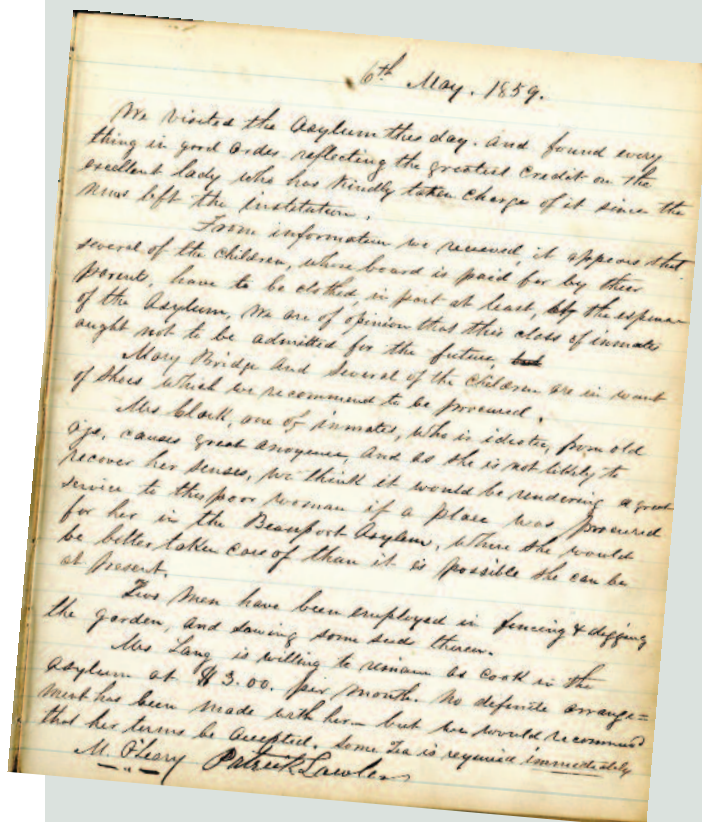 6th May. 1859.
We visited the Asylum this day. and found every
thing in good order. reflecting the greatest credit on the
excellent lady who has kindly taken charge of it since the
nuns left the institution.
From information we received, it appears that
several of the children, whose board is paid for by their
parents, have to be clothed, in part at least, by the expense
of the Asylum, We are of opinion that this class of inmates
ought not to be admitted for the future,
Mary Bridge and several of the children are in want
of shoes which we recommend to be procured.
Mrs Clark, one of inmates, who is idiotic, from old
age, causes great anoyence, and as she is not likely to
recover her senses, we think it would be rendering a great
service to this poor woman if a place was procured
for her in the Beauport Asylum, where she would
be better taken care of than it is possible she can be
at present.
Two men have been employed in fencing & digging
the garden, and sowing some seed therein.
Mrs Lang is willing to remain as cook in the
Asylum at $3.00. per month. no definite arrange=
ment has been made with her - but we would recommend
that her terms be accepted. some Tea is required immediately
M. O'Leary Patrick Lawlor